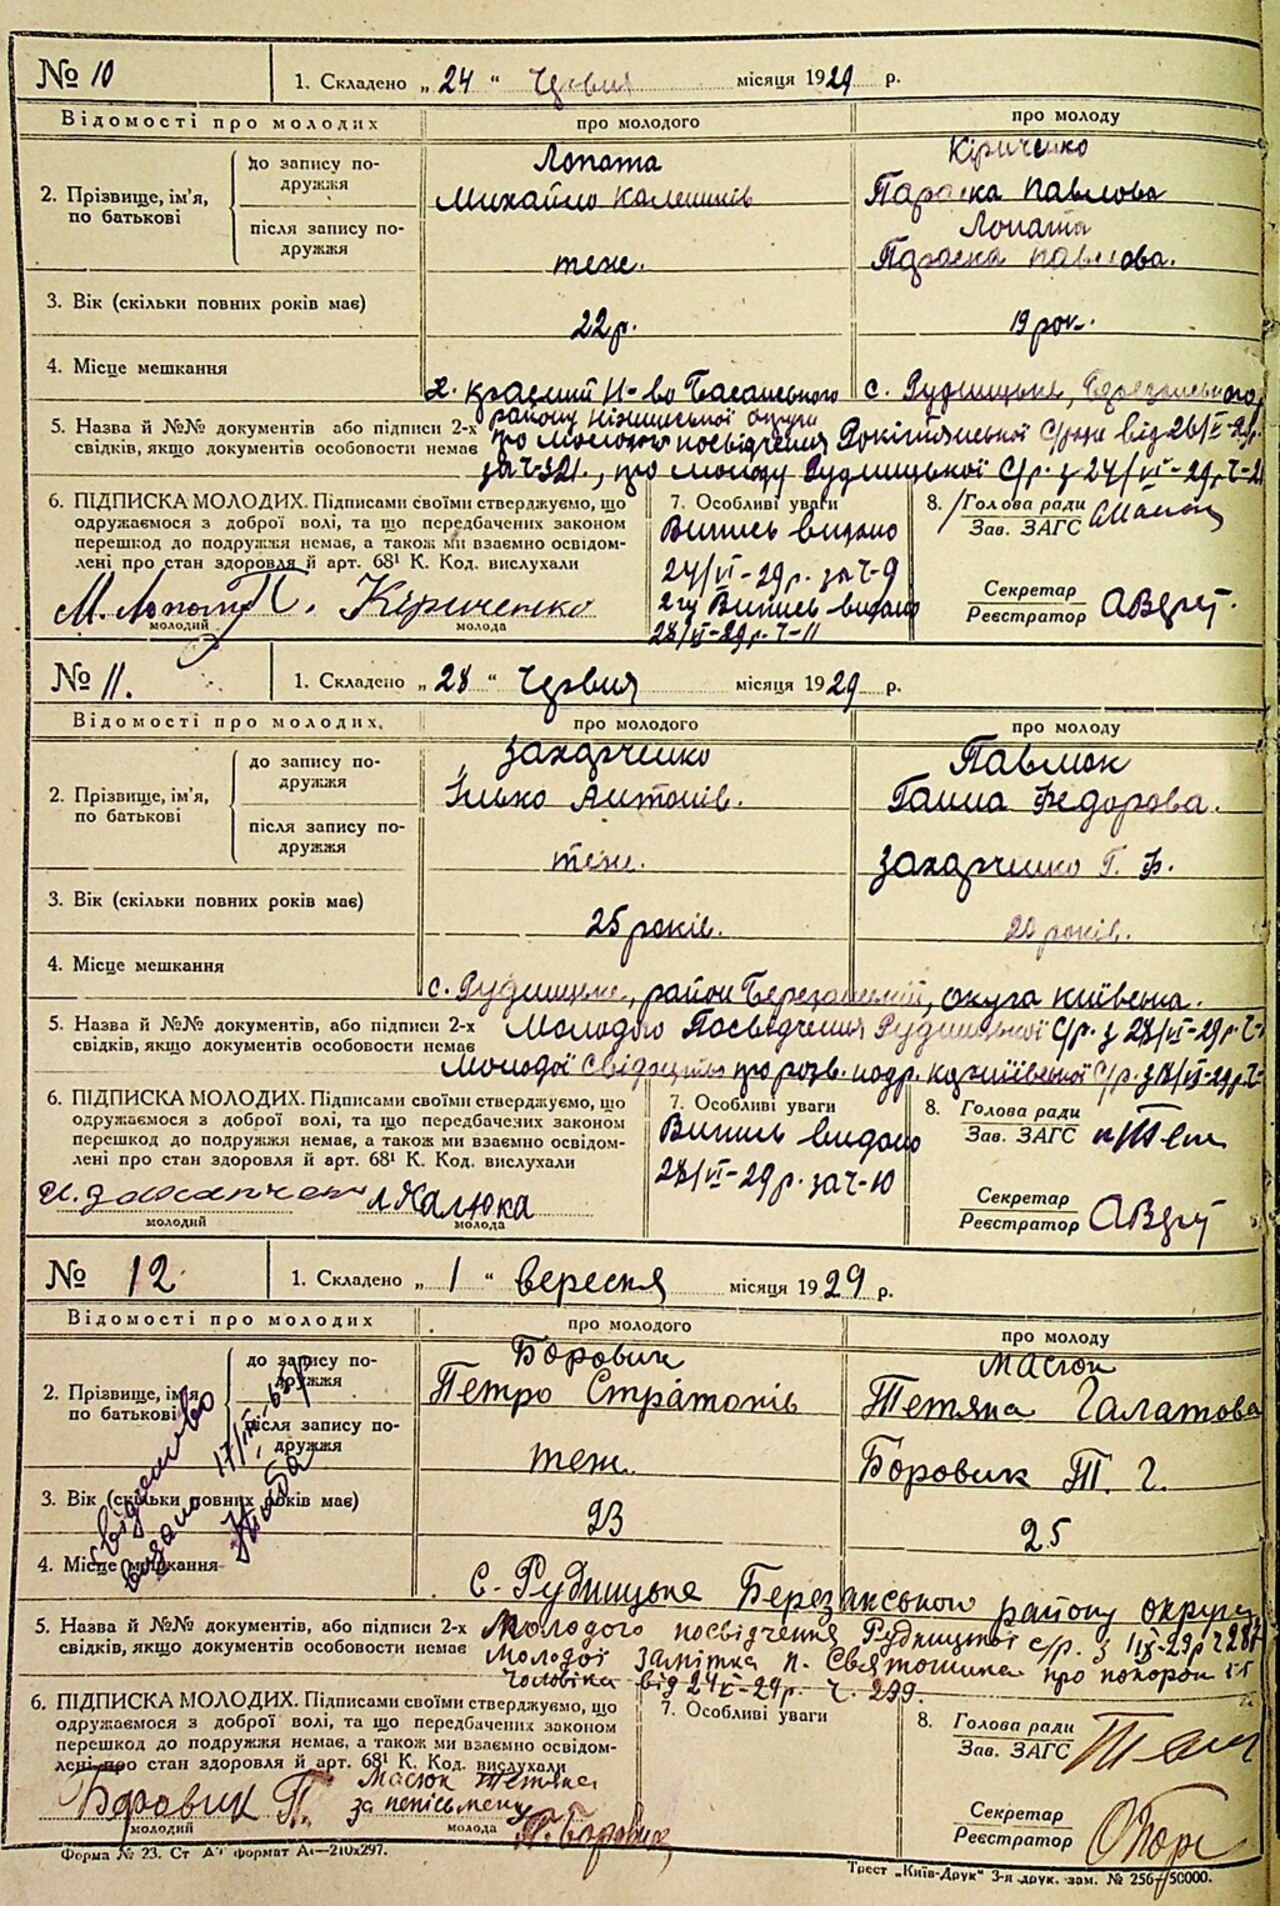 № 10 1. Складено „ 24 “ Червня місяця 1929 р.
Відомості про молодих про молодого про молоду
2. Прізвище, ім'я, по батькові
до запису подружжя
Лопата
Михайло
Кіриченко
Параска Павлова
після запису подружжя
теж.
Лопата
Параска Павлова.
3. Вік (скільки повних років має)
22 р. 19 рок.
4. Місце мешкання
х. Красний с. Рудницьке, Березанського
району Ніжинської округи
5. Назва й №№ документів або підписи 2-х
свідків, якщо документів особовости немає
про молодого посвідчення с/ради від 26/VI-29р.
за ч-321., про молоду Рудницької С/р. з 24/VI-29р. ч-
6. ПІДПИСКА МОЛОДИХ. Підписами своїми стверджуємо, що
одружаємося з доброї волі, та що передбачених законом
перешкод до подружжя немає, а також ми взаємно освідом-
лені про стан здоровля й арт. 68¹ К. Код. вислухали
М. Лопата П. Кіриченко
молодий молода
7. Особливі уваги
Випись видано
24/VI-29р. за ч-9
2гу Випись видано
28/VI-29р. ч-11
8. Голова ради
Зав. ЗАГС
Секретар
Реєстратор
№ 11. 1. Складено „ 28 “ Червня місяця 1929 р.
Відомості про молодих. про молодого про молоду
2. Прізвище, ім'я, по батькові
до запису подружжя
Захарченко
Ілько Антонів.
Павлюк
Ганна Федорова.
після запису подружжя
теж.
Захарченко Г. Ф.
3. Вік (скільки повних років має)
25 років. 20 років.
4. Місце мешкання
с. Рудницьке, район Березанський, округа Київська.
5. Назва й №№ документів, або підписи 2-х
свідків, якщо документів особовости немає
Молодого Посвідчення Рудницької С/р. з 28/VI-29р. ч-
Молодої Свідоцтво про розв. подр. С/р. з 18/VI-29р. ч-
6. ПІДПИСКА МОЛОДИХ. Підписами своїми стверджуємо, що
одружаємося з доброї волі, та що передбачених законом
перешкод до подружжя немає, а також ми взаємно освідом-
лені про стан здоровля й арт. 68¹ К. Код. вислухали
молодий молода
7. Особливі уваги
Випись видано
28/VI-29р. за ч-10
8. Голова ради
Зав. ЗАГС
Секретар
Реєстратор
№ 12 1. Складено „ 1 “ вересня місяця 1929 р.
Відомості про молодих про молодого про молоду
2. Прізвище, ім'я, по батькові
до запису подружжя
Боровик
Петро Стратонів
Масюк
Тетяна Галатова
після запису подружжя
теж.
Боровик Т. Г.
свідоцтво
видано 17/III-65р
3. Вік (скільки повних років має)
23 25
4. Місце мешкання
С. Рудницьке Березанського району округи
5. Назва й №№ документів, або підписи 2-х
свідків, якщо документів особовости немає
Молодого посвідчення Рудницької с/р. з 1/IX-29р ч 287
Молодої замітка п. Святошина про похорон
чоловіка від 24 -29р. ч. 299.
6. ПІДПИСКА МОЛОДИХ. Підписами своїми стверджуємо, що
одружаємося з доброї волі, та що передбачених законом
перешкод до подружжя немає, а також ми взаємно освідом-
лені про стан здоровля й арт. 68¹ К. Код. вислухали
Боровик П.
Масюк Тетяна
за неписьмену
П. Боровик
молодий молода
7. Особливі уваги
8. Голова ради
Зав. ЗАГС
Секретар
Реєстратор
Форма № 23. Ст А⁴ формат А₄—210х297.
Трест „Київ-Друк“ 3-я друк. зам. № 256—50000.